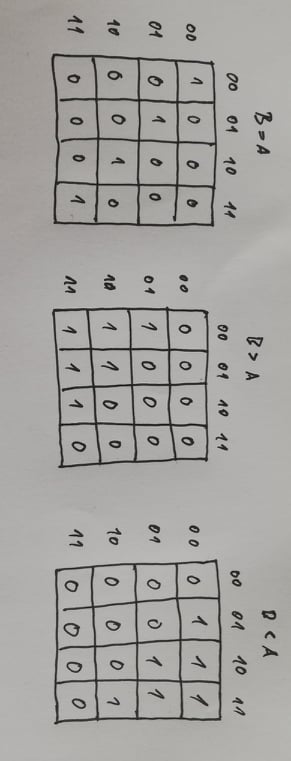 B = A
00 01 10 11
00 1 0 0 0
01 0 1 0 0
10 0 0 1 0
11 0 0 0 1
B > A
00 01 10 11
00 0 0 0 0
01 1 0 0 0
10 1 1 0 0
11 1 1 1 0
B < A
00 01 10 11
00 0 1 1 1
01 0 0 1 1
10 0 0 0 1
11 0 0 0 0